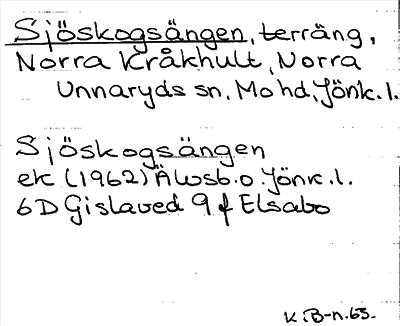 Sjöskogsängen, terräng,
Norra Kråkhult, Norra
Unnaryds sn, Mo hd, Jönk. l.
Sjöskogsängen
ek (1962) Älvsb. o. Jönk. l.
6D Gislaved 9f Elsabo
K. B-n. 63.